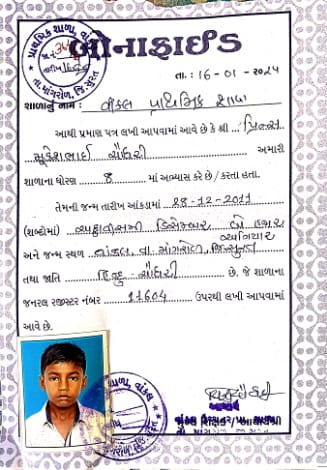 પ્રાથમિક શાળા, વાંકલ
તા.માંગરોળ, જિ.સુરત
બોનાફાઈડ
તા. : 16-01-2025
શાળાનું નામ : વાંકલ પ્રાથમિક શાળા
આથી પ્રમાણ પત્ર લખી આપવામાં આવે છે કે શ્રી પ્રિન્સ
સુરેશભાઈ ચૌધરી અમારી
શાળાના ધોરણ 8 માં અભ્યાસ કરે છે / કરતા હતા.
તેમની જન્મ તારીખ આંકડામાં 28-12-2011
(શબ્દોમાં) અઠ્ઠાવીસમી ડિસેમ્બર બે હજાર
અગિયાર
અને જન્મ સ્થળ વાંકલ, તા. માંગરોળ, જિ.સુરત
તથા જાતિ હિન્દુ-ચૌધરી છે. જે શાળાના
જનરલ રજીસ્ટર નંબર 11604 ઉપરથી લખી આપવામાં
આવે છે.
શાળા, વાંકલ